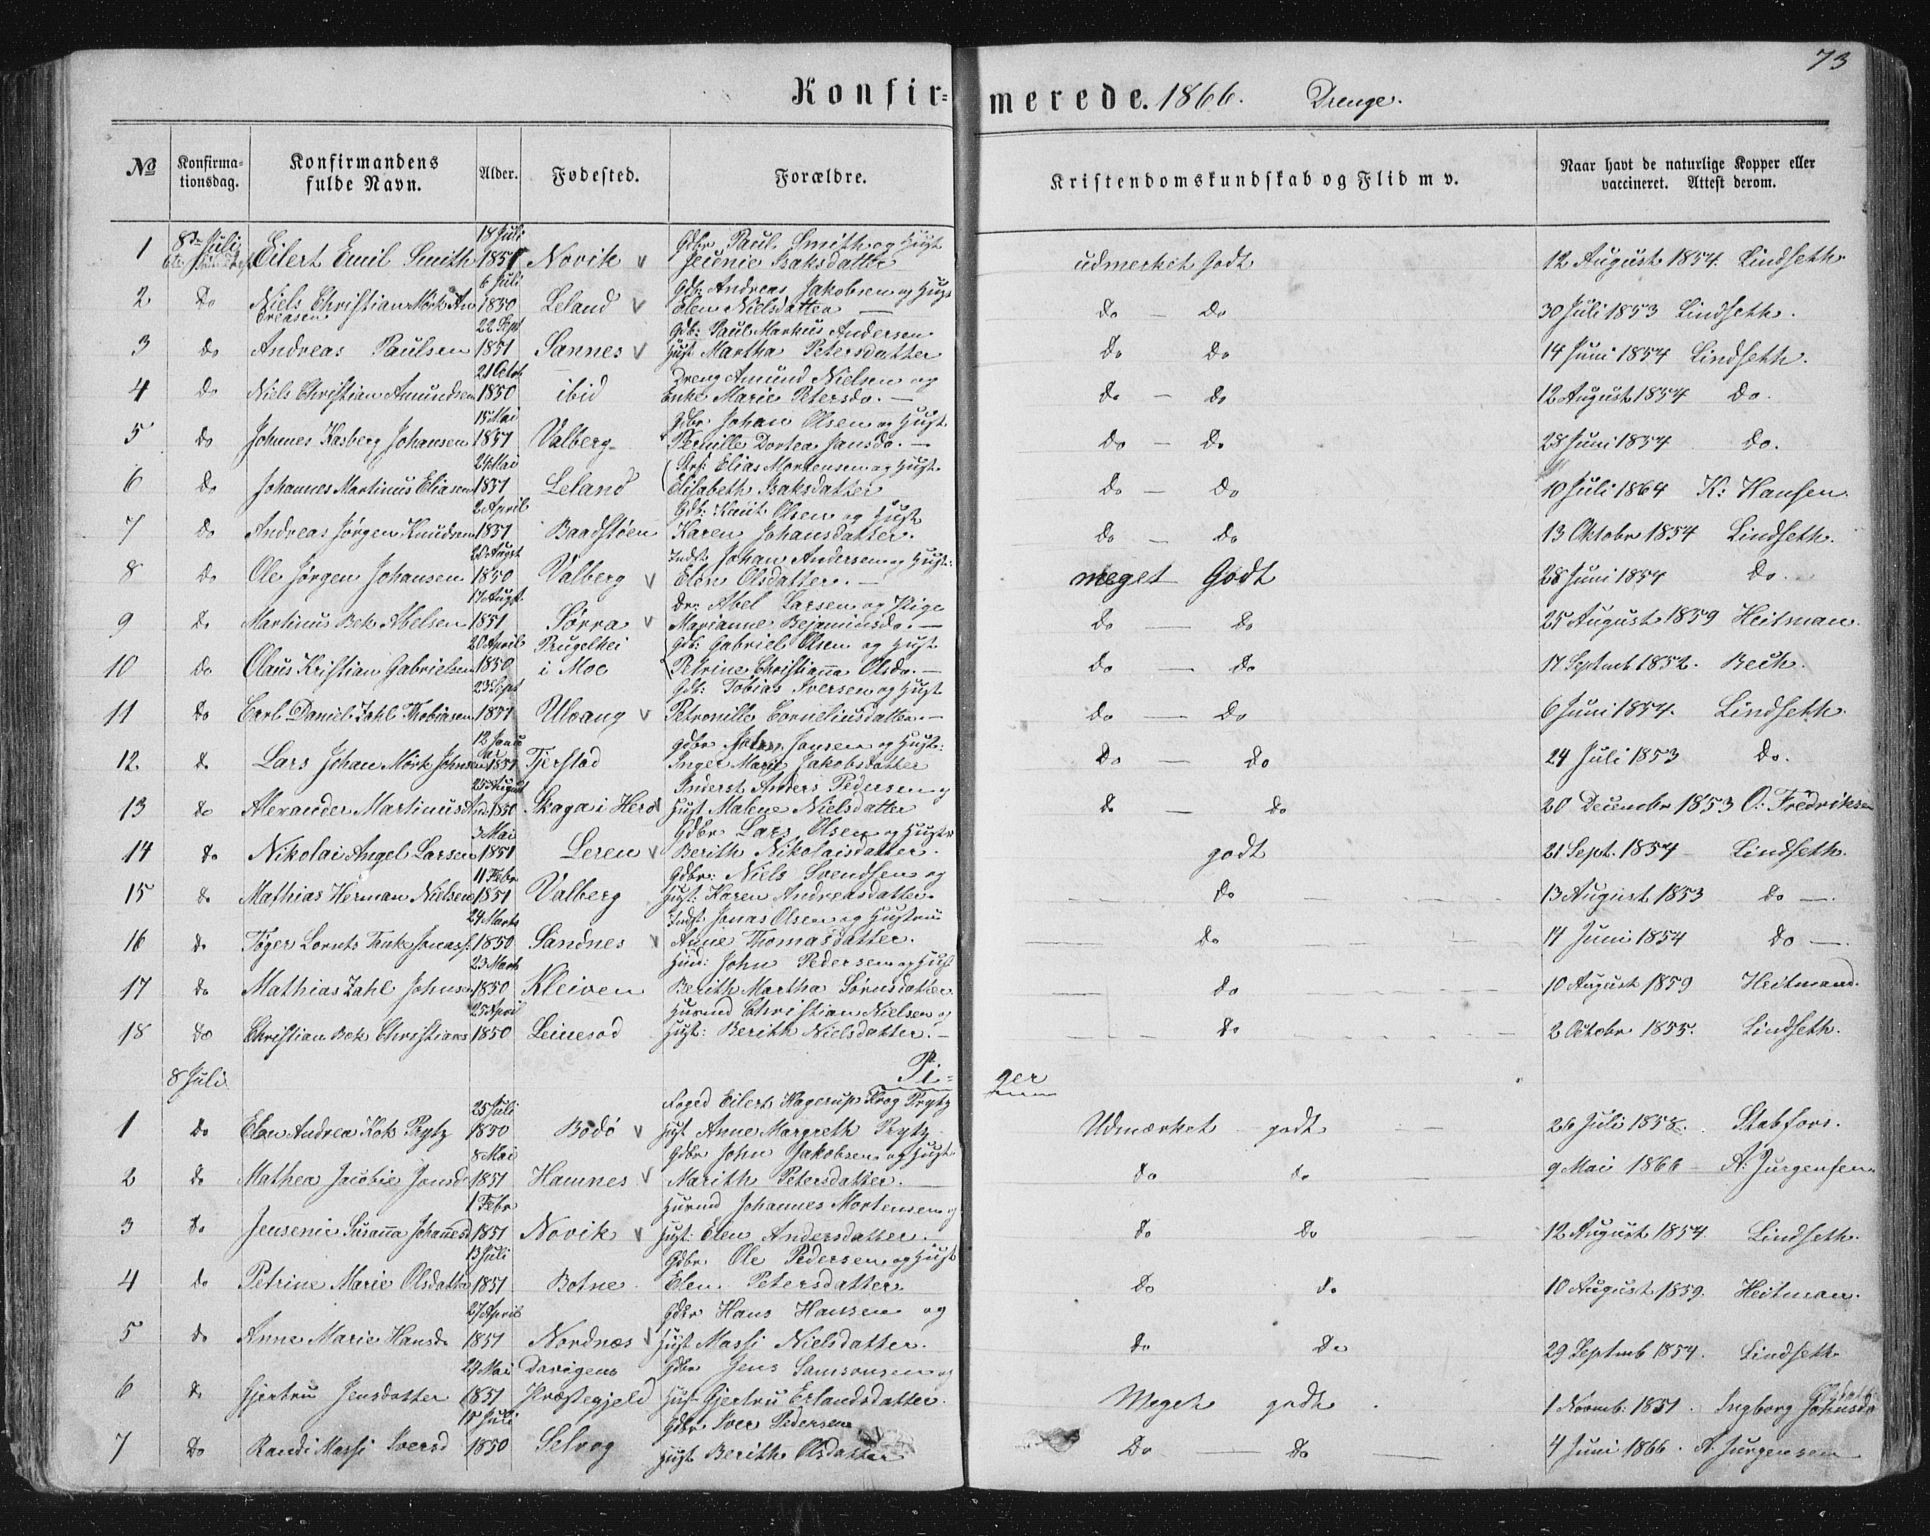 73
Konfirmerede. 1866. Drenge.
№ Konfirmationsdag. Konfirmandens fulde Navn. Alder. Fødested. Forældre. Kristendomskundskab og Flid m v. Naar havt de naturlige Kopper eller vaccineret. Attest derom.
1 8de Juli Eilert Emil Smith 18 Juli 1851 Novik v Gdbr Paul Smith og Hust Jeunie Isaksdatter udmerket Godt 12 August 1854. Lindseth.
2 do Niels Christian Mörk Andreasen 6 Juli 1850 Leland v Gdb: Andreas Jakobsen og Hust Elen Nielsdatter — do — do 30 Juli 1853 Lindseth.
3 do Andreas Paulsen 22 Sept 1851 Sannes v Gdb: Paul Markus Andersen Hust Martha Petersdatter do do 14 Juni 1854 Lindseth.
4 do Niels Christian Amundsen 21 Octob 1850 ibid Dreng Amund Nielsen og Enke Marie Petersda. — do — do 12 August 1854 do.
5 do Johnnes Hasberg Johansen 15 Mai 1851 Valberg Gdbr Johan Olsen og Hust Pernille Dortea Jansda. — do — do 28 Juni 1854 do.
6 do Johannes Martinus Eliasen 24 Mai 1851 Leland Strf: Elias Mortensen og Hust. Elisabeth Isaksdatter do — do 10 Juli 1864 K: Hansen.
7 do Andreas Jørgen Knudsen 2 April 1851 Baadstøen Gdb: Knut Olsen og Hust Karen Johansdatter. do — do 13 Oktobr 1854 Lindseth.
8 do Ole Jørgen Johansen 20 Augst 1850 Valberg v Indst Johan Andersen og Hust: Elen Olsdatter. — meget Godt 28 Juni 1854 do.
9 do Martinus Bek Abelsen 17 Augst. 1851 Sørra v Dr: Abel Larsen og Pige Marianne Bejaminsda. — do — do 25 August 1859 Heitman.
10 do Olaus Kristian Gabrielsen 20 April 1850 Prugelhei i Moe Gdb: Gabriel Olsen og Hust Petrine Christianna Olsda. — do — do 17 Septmb 1852. Bech.
11 do Carl Daniel Zahl Thobiasen 23 Sept 1851 Ulvang v Gdb: Tobias Iversen og Hust Petronille Corneliusdatter. — do — do 6 Juni 1854. Lindseth.
12. do Lars Johan Mörk Johnsen 12 Januar 1851 Tjerstad Gdbr John Jonsen og Hust: Inger Marie Jakobsdatter do — do 24 Juli 1853 do.
13 do Alexander Martinus And. 25 August 1850 Skaga i Herø Inderst Anders Pedersen og Hust Malene Nielsdatter do — do 20 Decembr 1853 O: Fredriksen
14 do Nikolai Angel Larsen 3 Mai 1851 Leren v Gdbr Lars Olsen og Hustr Berith Nikolaisdatter. godt 21 Sept. 1854 Lindseth.
15 do Mathias Herman Nielsen 11 Febr 1851 Valberg Gdbr: Niels Svendsen og Hust: Karen Andreasdatter. do 13 August 1853 do —.
16 do Tøger Lornts Tank Jonass. 24 Marts 1850 Sandnes v Indst: Jonas Olsen og Hustru Anne Thomasdatter. do 14 Juni 1854 do —.
17 do Mathias Zahl Johnsen 23 Marts 1850 Kleiven Huus: John Pedersen og Hust Berith Martha Sørnsdatter do 10 August 1859 Heitmand.
18 do Christian Bek Christians 25 April 1850 Leinesod Husmd Christian Nielsen og Hust: Berith Nielsdatter. — do 2 Octobr 1855. Lindseth.
8 Juli Piger
1 do Elen Andrea Kok Prytz 25 Juli 1850 Bodö v Foged Eilert Hagerup Krog Prytz Hust Anne Margreth Prytz Udmærket godt 26 Juli 1858. Stabfors.
2 do Mathea Jacobie Jonsd 8 Mai 1851 Hamnes v Gdbr John Jakobsen og Hust Marith Petersdatter. — do do 9 Mai 1866 — A: Jurgensen
3 do Jensenie Susanna Johannesd 1 Febr 1851 Novik v Husmd Johannes Mortensen og Hust: Elen Andersdatter. — do do 12 August 1854. Lindseth.
4 do Petrine Marie Olsdatter 13 Juli 1851 Botne Gdbr Ole Pedersen og Hust Elen Petersdatter do do 10 August 1859. Heitman.
5 do Anne Marie Hansd. 27 April 1851 Nordnæs v Gdbr Hans Hansen og Hust Massi Nielsdatter. do do 29 Septmb 1854. Lindseth
6 do Gjertru Jensdatter 24 Mai 1851 Præstegjeld Gdbr Jens Samsonsen og Hust Gjertru Erlandsdatter. Meget godt. 1 Novmb. 1851. Ingborg Johnsda
7 do Randi Massi Iversd 15 Juli 1850 Selvog Gdbr Iver Pedersen Hust Berith Olsdatter do — do 4 Juni 1866. A. Jurgensen